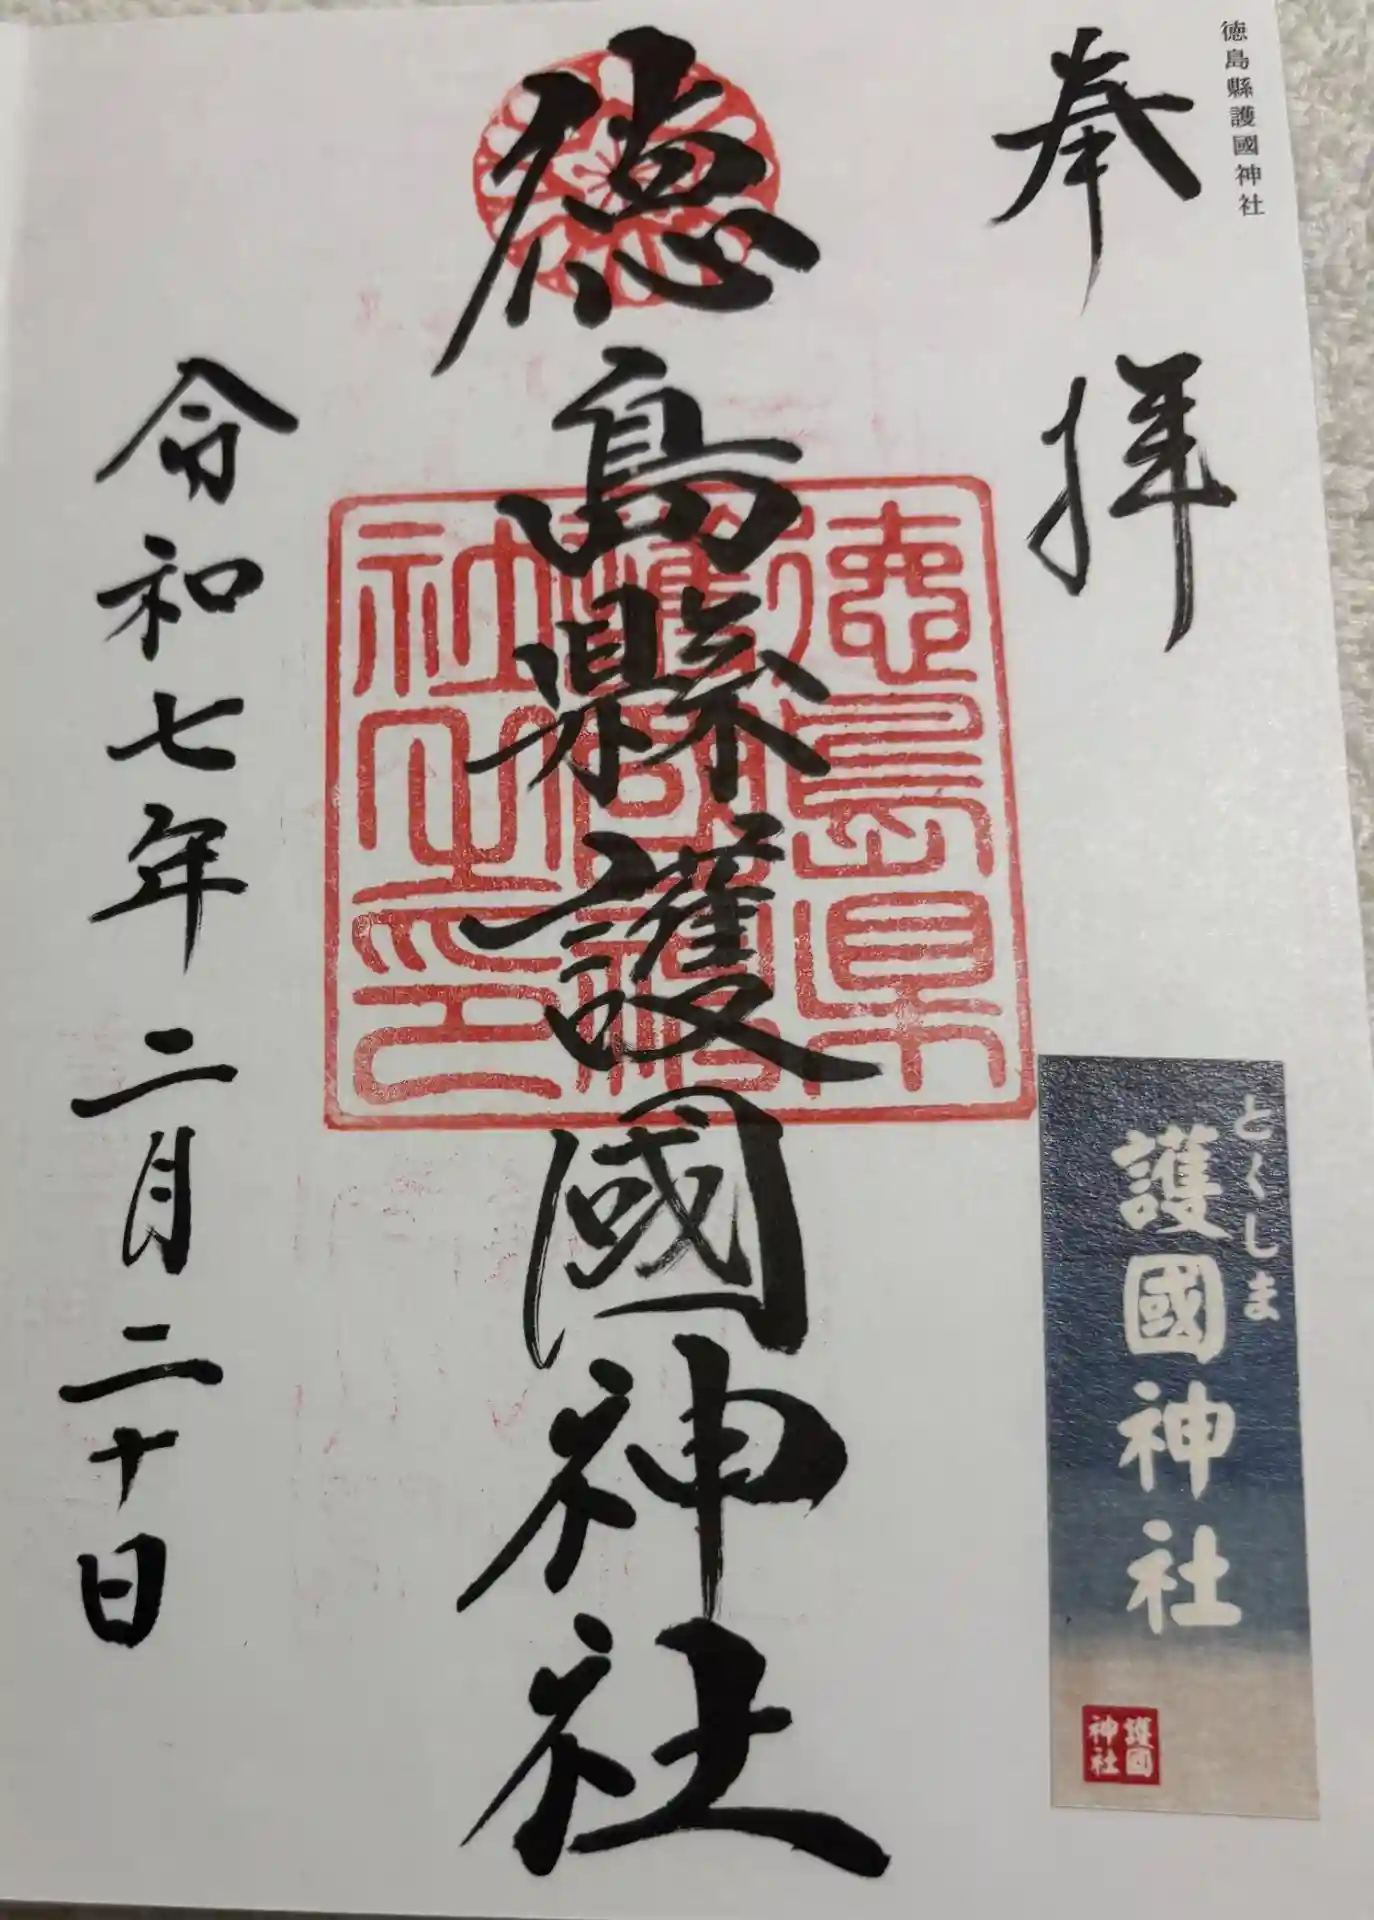 徳島縣護國神社
奉拝
徳島縣護國神社
徳島県
社之印
令和七年二月二十日
とくしま
護國神社
護國
神社